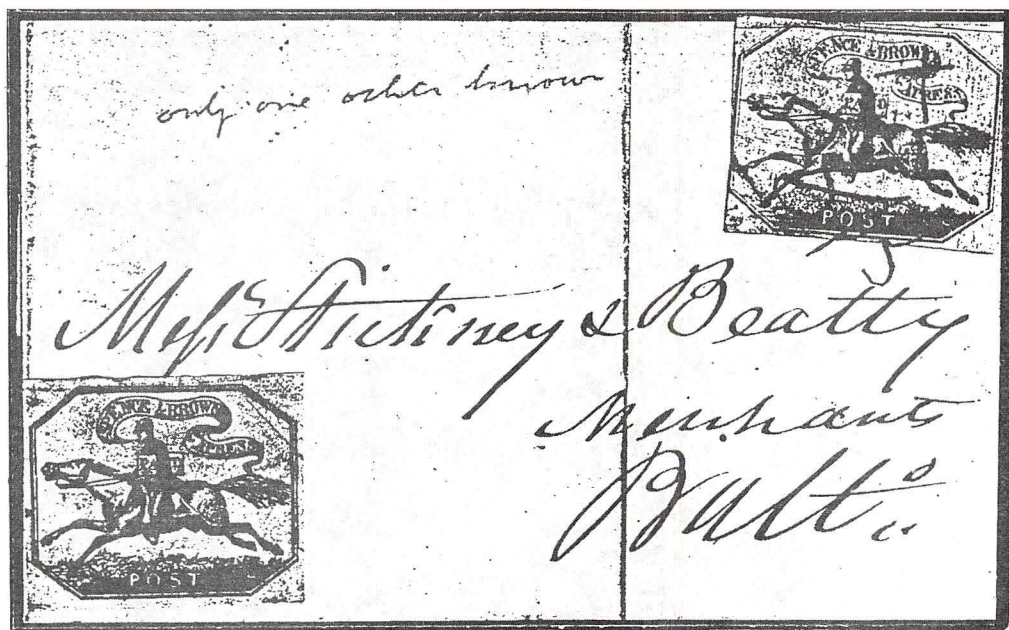 only one other known
SPENCE & BROWN
EXPRESS
POST
Messrs Stickney & Beatty
Merchants
Balto
SPENCE & BROWN
EXPRESS
POST